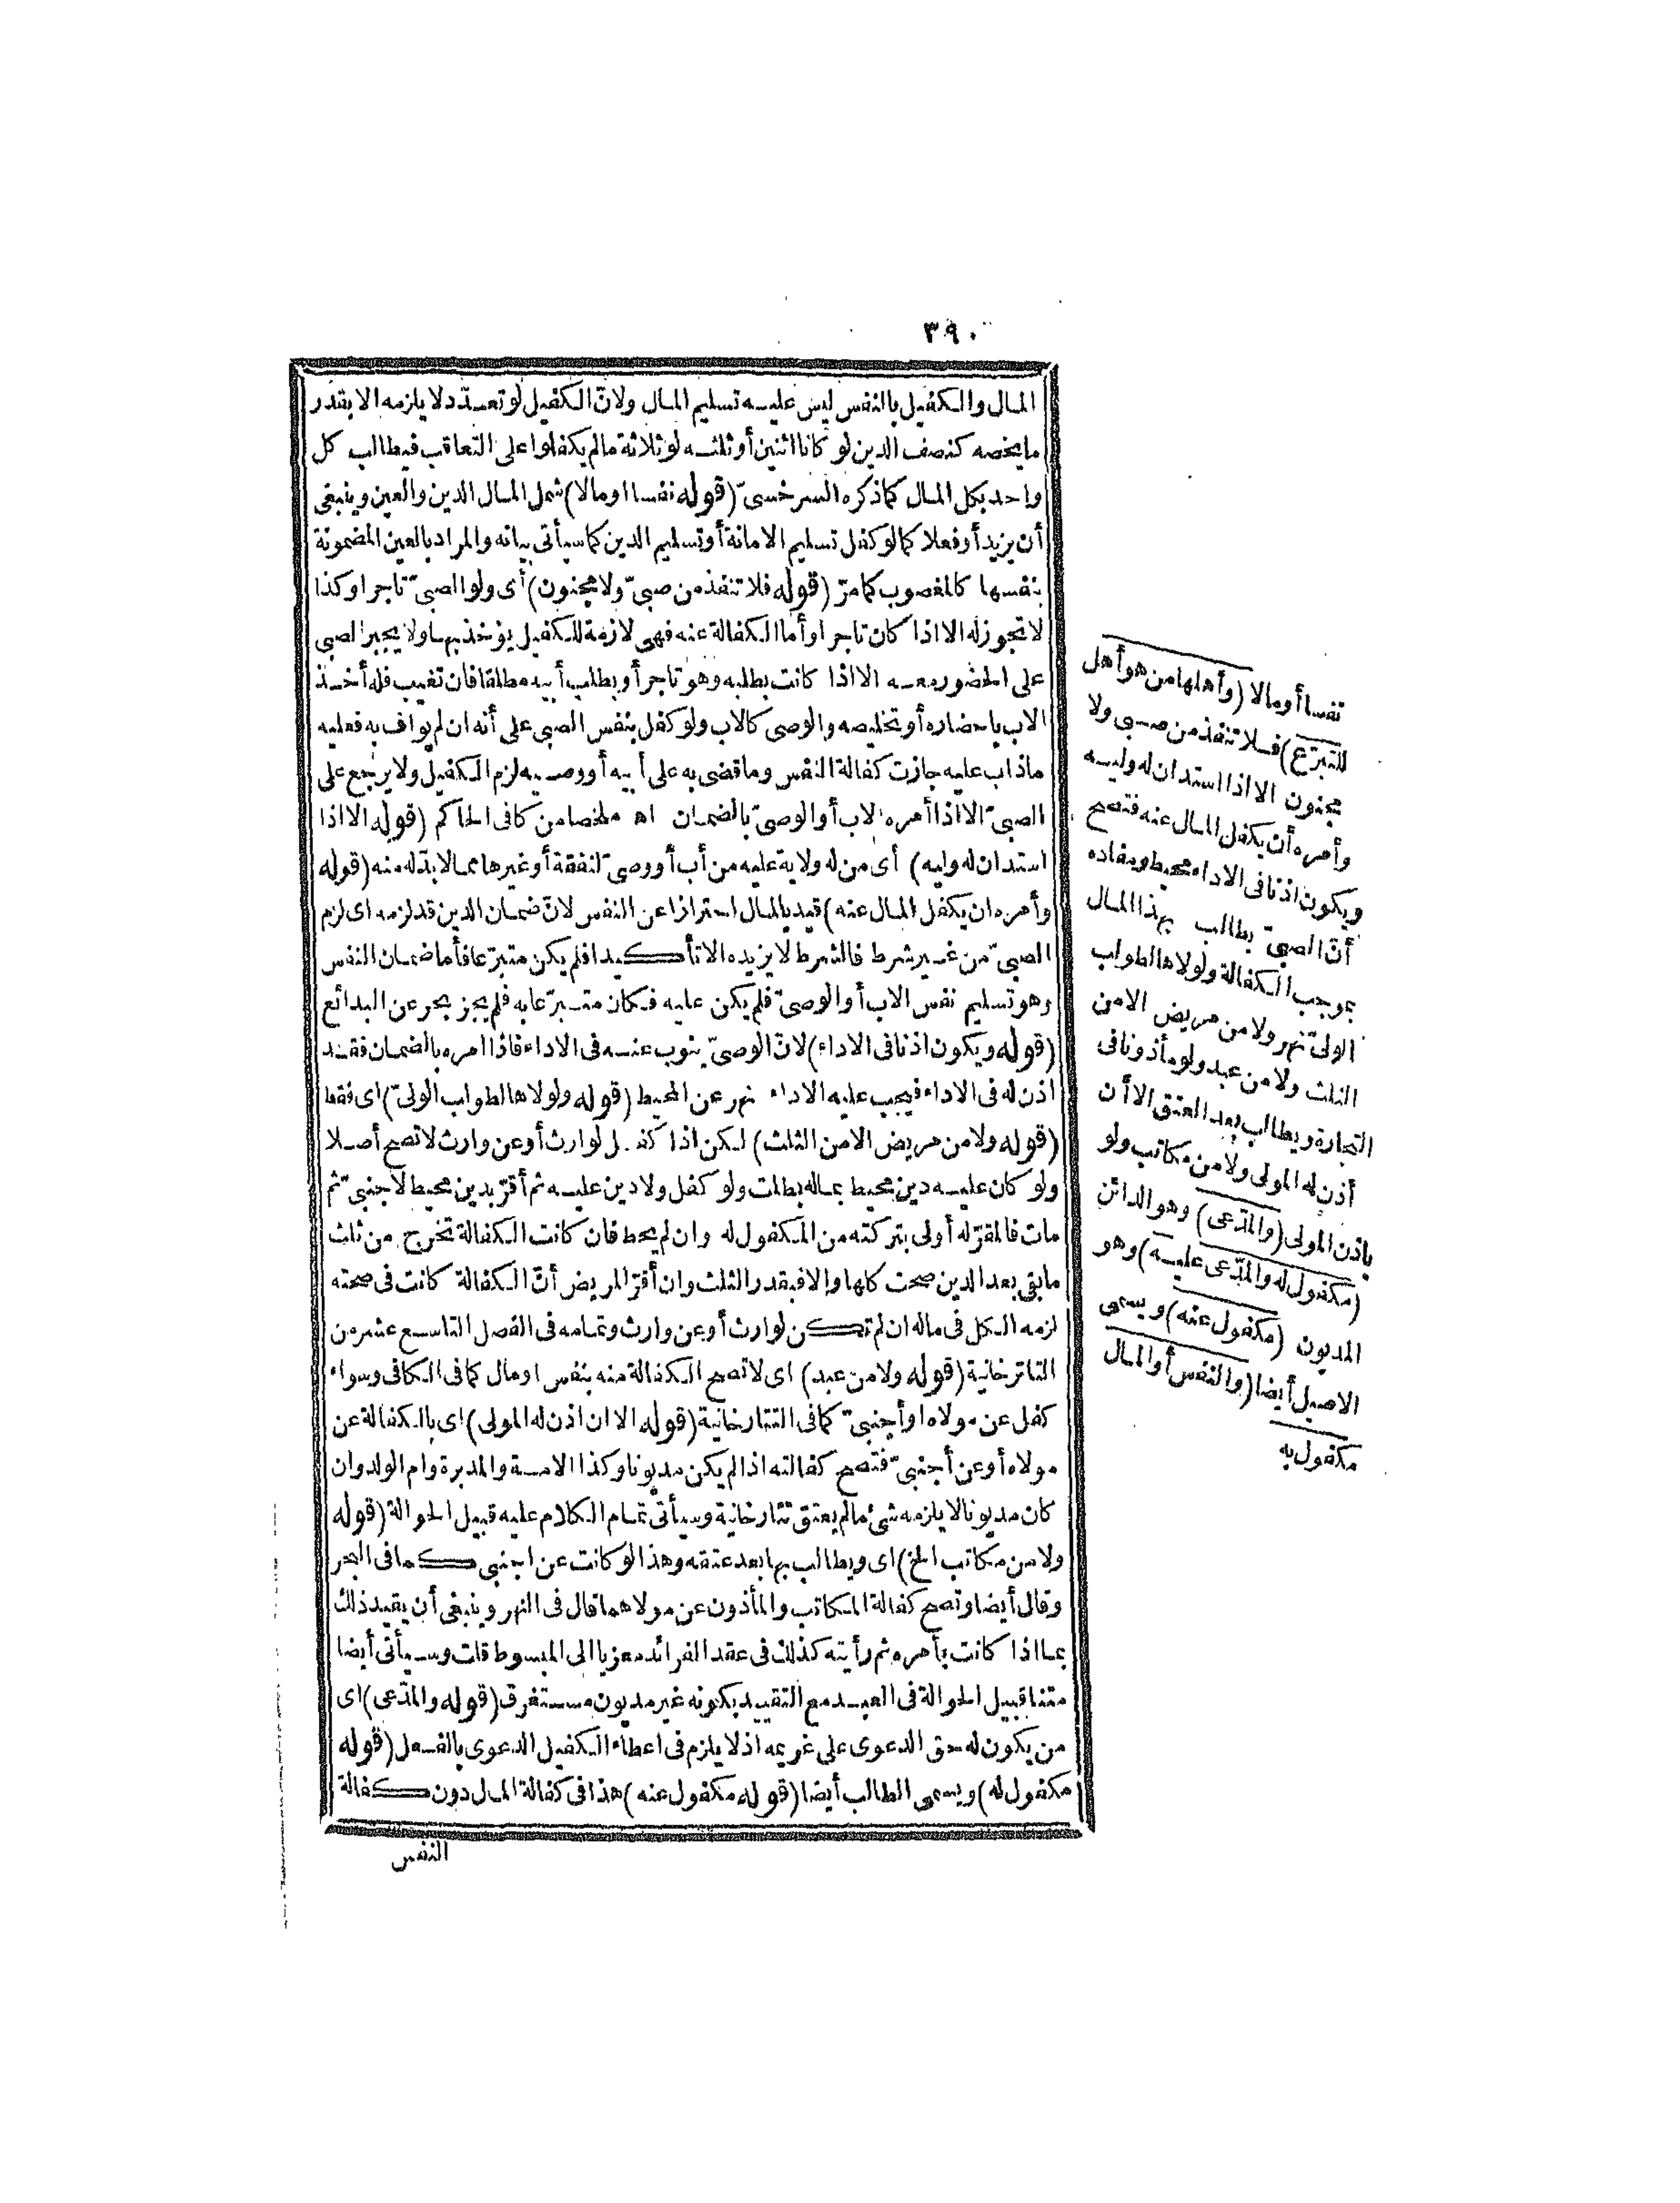 ٣٩٠
المال والكفيل بالنفس ليس عليه تسليم المال ولان الكفيل لو تعدّد لا يلزمه الا بقدر
ما يخصه كنصف الدين لو كانا اثنين أو ثلثه لو ثلاثة ما لم يكفلوا على التعاقب فيطالب كل
واحد بكل المال كما ذكره السرخسىّ (قوله نفسا او مالا) شمل المال الدين والعين وينبغى
أن يزيد أو فعلا كما لو كفل تسليم الامانة أو تسليم الدين كما سيأتى بيانه والمراد بالعين المضمونة
بنفسها كالمغصوب كما مرّ (قوله فلا تنفذ من صبىّ ولا مجنون) أى ولو الصبىّ تاجرا وكذا
لا تجوز له الا اذا كان تاجرا وأما الكفالة عنه فهى لازمة للكفيل يؤخذ بها ولا يجبر الصبى
على الحضور معه الا اذا كانت بطلبه وهو تاجر أو بطلب أبيه مطلقا فان تغيب فله أخذ
الاب باحضاره أو تخليصه والوصى كالاب ولو كفل بنفس الصبى على أنه ان لم يواف به فعليه
ماذاب عليه جازت كفالة النفس وما قضى به على أبيه أو وصيه لزم الكفيل ولا يرجع على
الصبىّ الا اذا أمره الاب أو الوصىّ بالضمان اه ملخصا من كافى الحاكم (قوله الا اذا
استدان له وليه) أى من له ولاية عليه من أب أو وصىّ لنفقة أو غيرها مما لا بدّ له منه (قوله
وأمره ان يكفل المال عنه) قيد بالمال احترازا عن النفس لانّ ضمان الدين قد لزمه اى لزم
الصبىّ من غير شرط فالشرط لا يزيده الا تأكيدا فلم يكن متبرّعا فأما ضمان النفس
وهو تسليم نفس الاب أو الوصىّ فلم يكن عليه فكان متبرّعا به فلم يجز بحر عن البدائع
(قوله ويكون اذنا فى الاداء) لانّ الوصىّ ينوب عنه فى الاداء فاذا امره بالضمان فقد
اذن له فى الاداء فيجب عليه الاداء نهر عن المحيط (قوله ولولاها لطولب الولىّ) اى فقط
(قوله ولا من مريض الا من الثلث) لكن اذا كفل لوارث أو عن وارث لا تصح أصلا
ولو كان عليه دين محيط بماله بطلت ولو كفل ولا دين عليه ثم أقرّ بدين محيط لأجنبىّ ثم
مات فالمقرّ له أولى بتركته من المكفول له وان لم يحط فان كانت الكفالة تخرج من ثلث
ما بقى بعد الدين صحت كلها والا فبقدر الثلث وان أقرّ المريض أنّ الكفالة كانت فى صحته
لزمه الكل فى ماله ان لم تكن لوارث أو عن وارث وتمامه فى الفصل التاسع عشر من
التاترخانية (قوله ولا من عبد) اى لا تصح الكفالة منه بنفس او مال كما فى الكافى وسواء
كفل عن مولاه او أجنبىّ كما فى التتارخانية (قوله الا ان اذن له المولى) اى بالكفالة عن
مولاه أو عن أجنبىّ فتصح كفالته اذا لم يكن مديونا وكذا الامة والمدبرة وام الولد وان
كان مديونا لا يلزمه شئ ما لم يعتق تتارخانية وسيأتى تمام الكلام عليه قبيل الحوالة (قوله
ولا من مكاتب الخ) اى ويطالب بها بعد عتقه وهذا لو كانت عن اجنبى كما فى البحر
وقال أيضا وتصح كفالة المكاتب والمأذون عن مولاهما قال فى النهر وينبغى أن يقيد ذلك
بما اذا كانت بأمره ثم رأيته كذلك فى عقد الفرائد معزيا الى المبسوط قلت وسيأتى أيضا
متنا قبيل الحوالة فى العبد مع التقييد بكونه غير مديون مستغرق (قوله والمدّعى) اى
من يكون له حق الدعوى على غريمه اذ لا يلزم فى اعطاء الكفيل الدعوى بالفعل (قوله
مكفول له) ويسمى الطالب أيضا (قوله مكفول عنه) هذا فى كفالة المال دون كفالة
النفس
نفسا أو مالا (وأهلها من هو أهل
للتبرّع) فلا تنفذ من صبى ولا
مجنون الا اذا استدان له وليه
وأمره أن يكفل المال عنه فتصح
ويكون اذنا فى الاداء محيط ومفاده
أنّ الصبىّ يطالب بهذا المال
بموجب الكفالة ولولاها لطولب
الولىّ نهر ولا من مريض الا من
الثلث ولا من عبد ولو مأذونا فى
التجارة ويطالب بعد العتق الا أن
أذن له المولى ولا من مكاتب ولو
باذن المولى (والمدّعى) وهو الدائن
(مكفول له والمدّعى عليه) وهو
المديون (مكفول عنه) ويسمى
الاصيل أيضا (والنفس أو المال
مكفول به